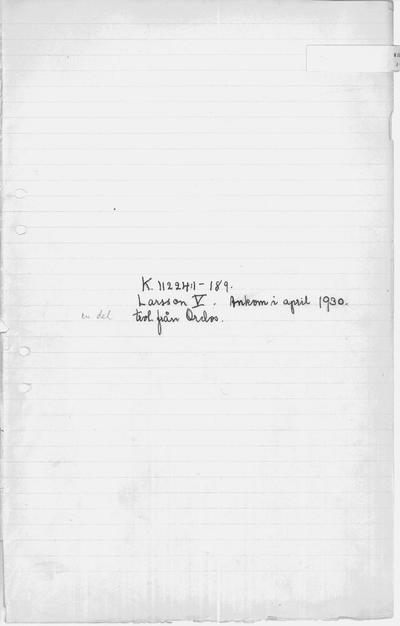 K. 11224:1-189.
Larsson V. Ankom i april 1930.
en del trol. från Ordos.